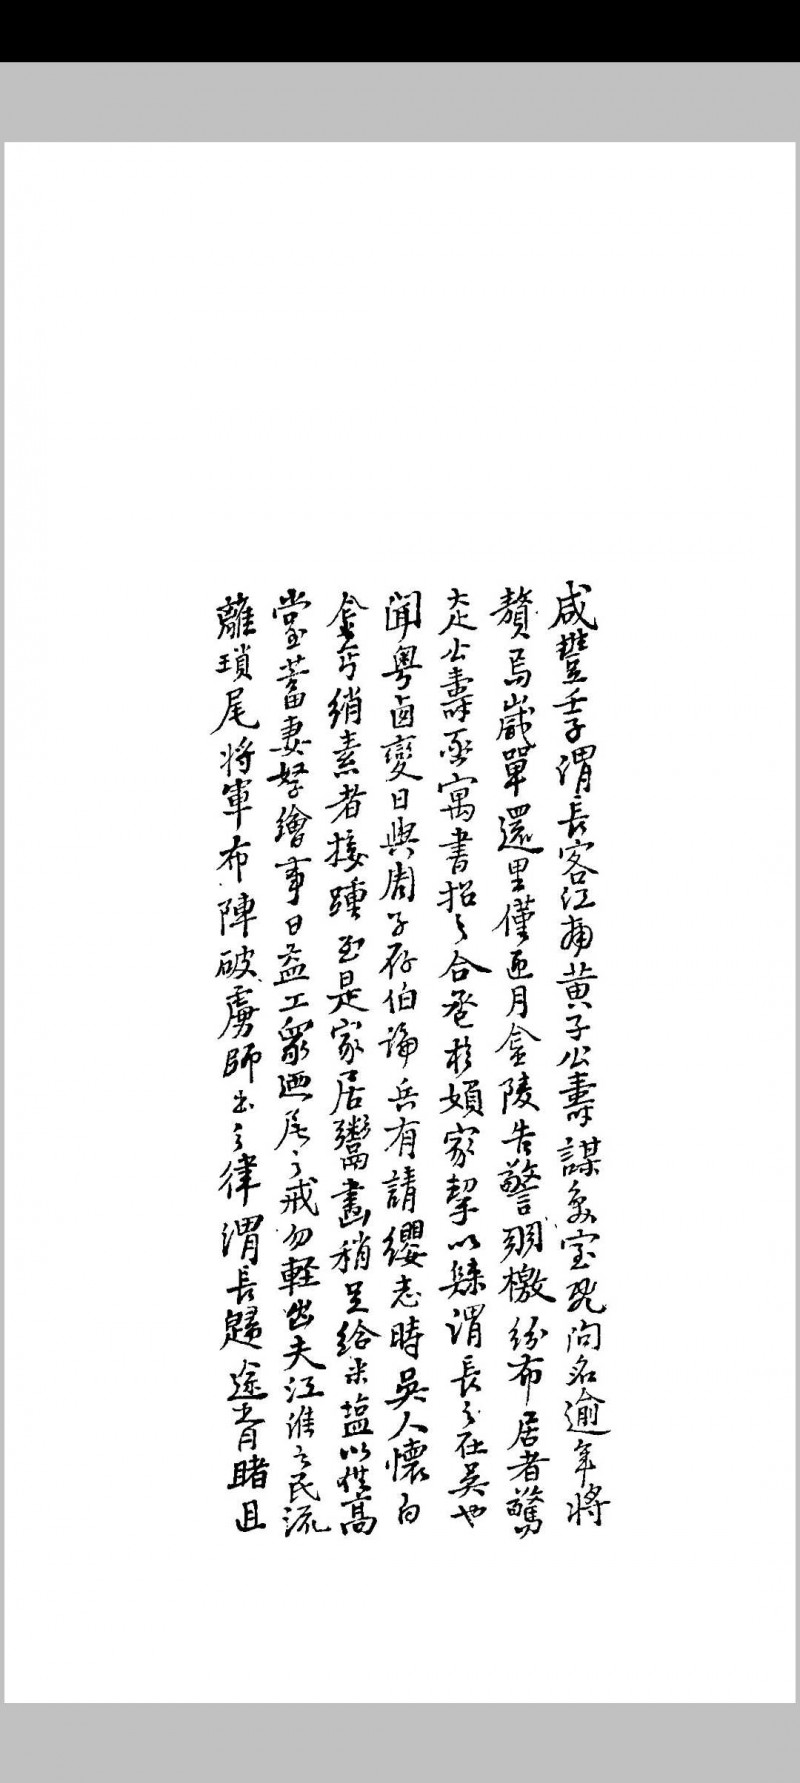 咸豐壬子渭長客江南黃子公壽謀為室既問名逾年將
贅焉歲單還里僅匝月金陵告警羽檄紛布居者驚
走公壽亟寓書招之合巹於媍家挈以歸渭長之在吳也
聞粵鹵變日與周子存伯論兵有請纓志時吳人懷白
金丐綃素者接踵至是家居鬻畫稍足給米塩以供高
堂蓄妻孥繪事日益工眾迺尼之戒勿輕出夫江淮之民流
離瑣尾將軍布陣破虜師出之律渭長歸途胥睹且